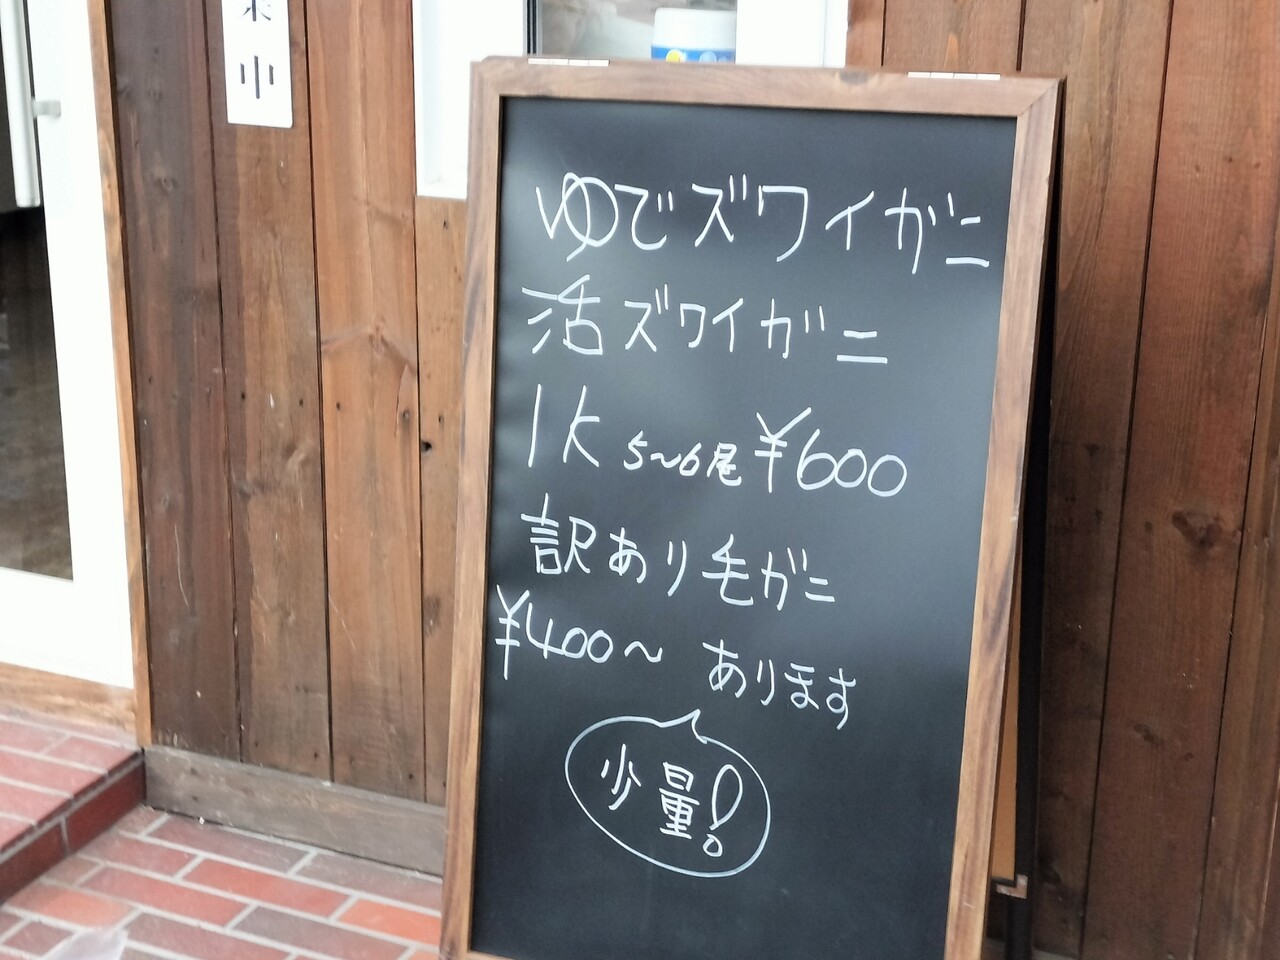 業中
ゆでズワイガニ
活ズワイガニ
1K 5〜6尾 ¥600
訳あり毛ガニ
¥400〜 あります
少量!